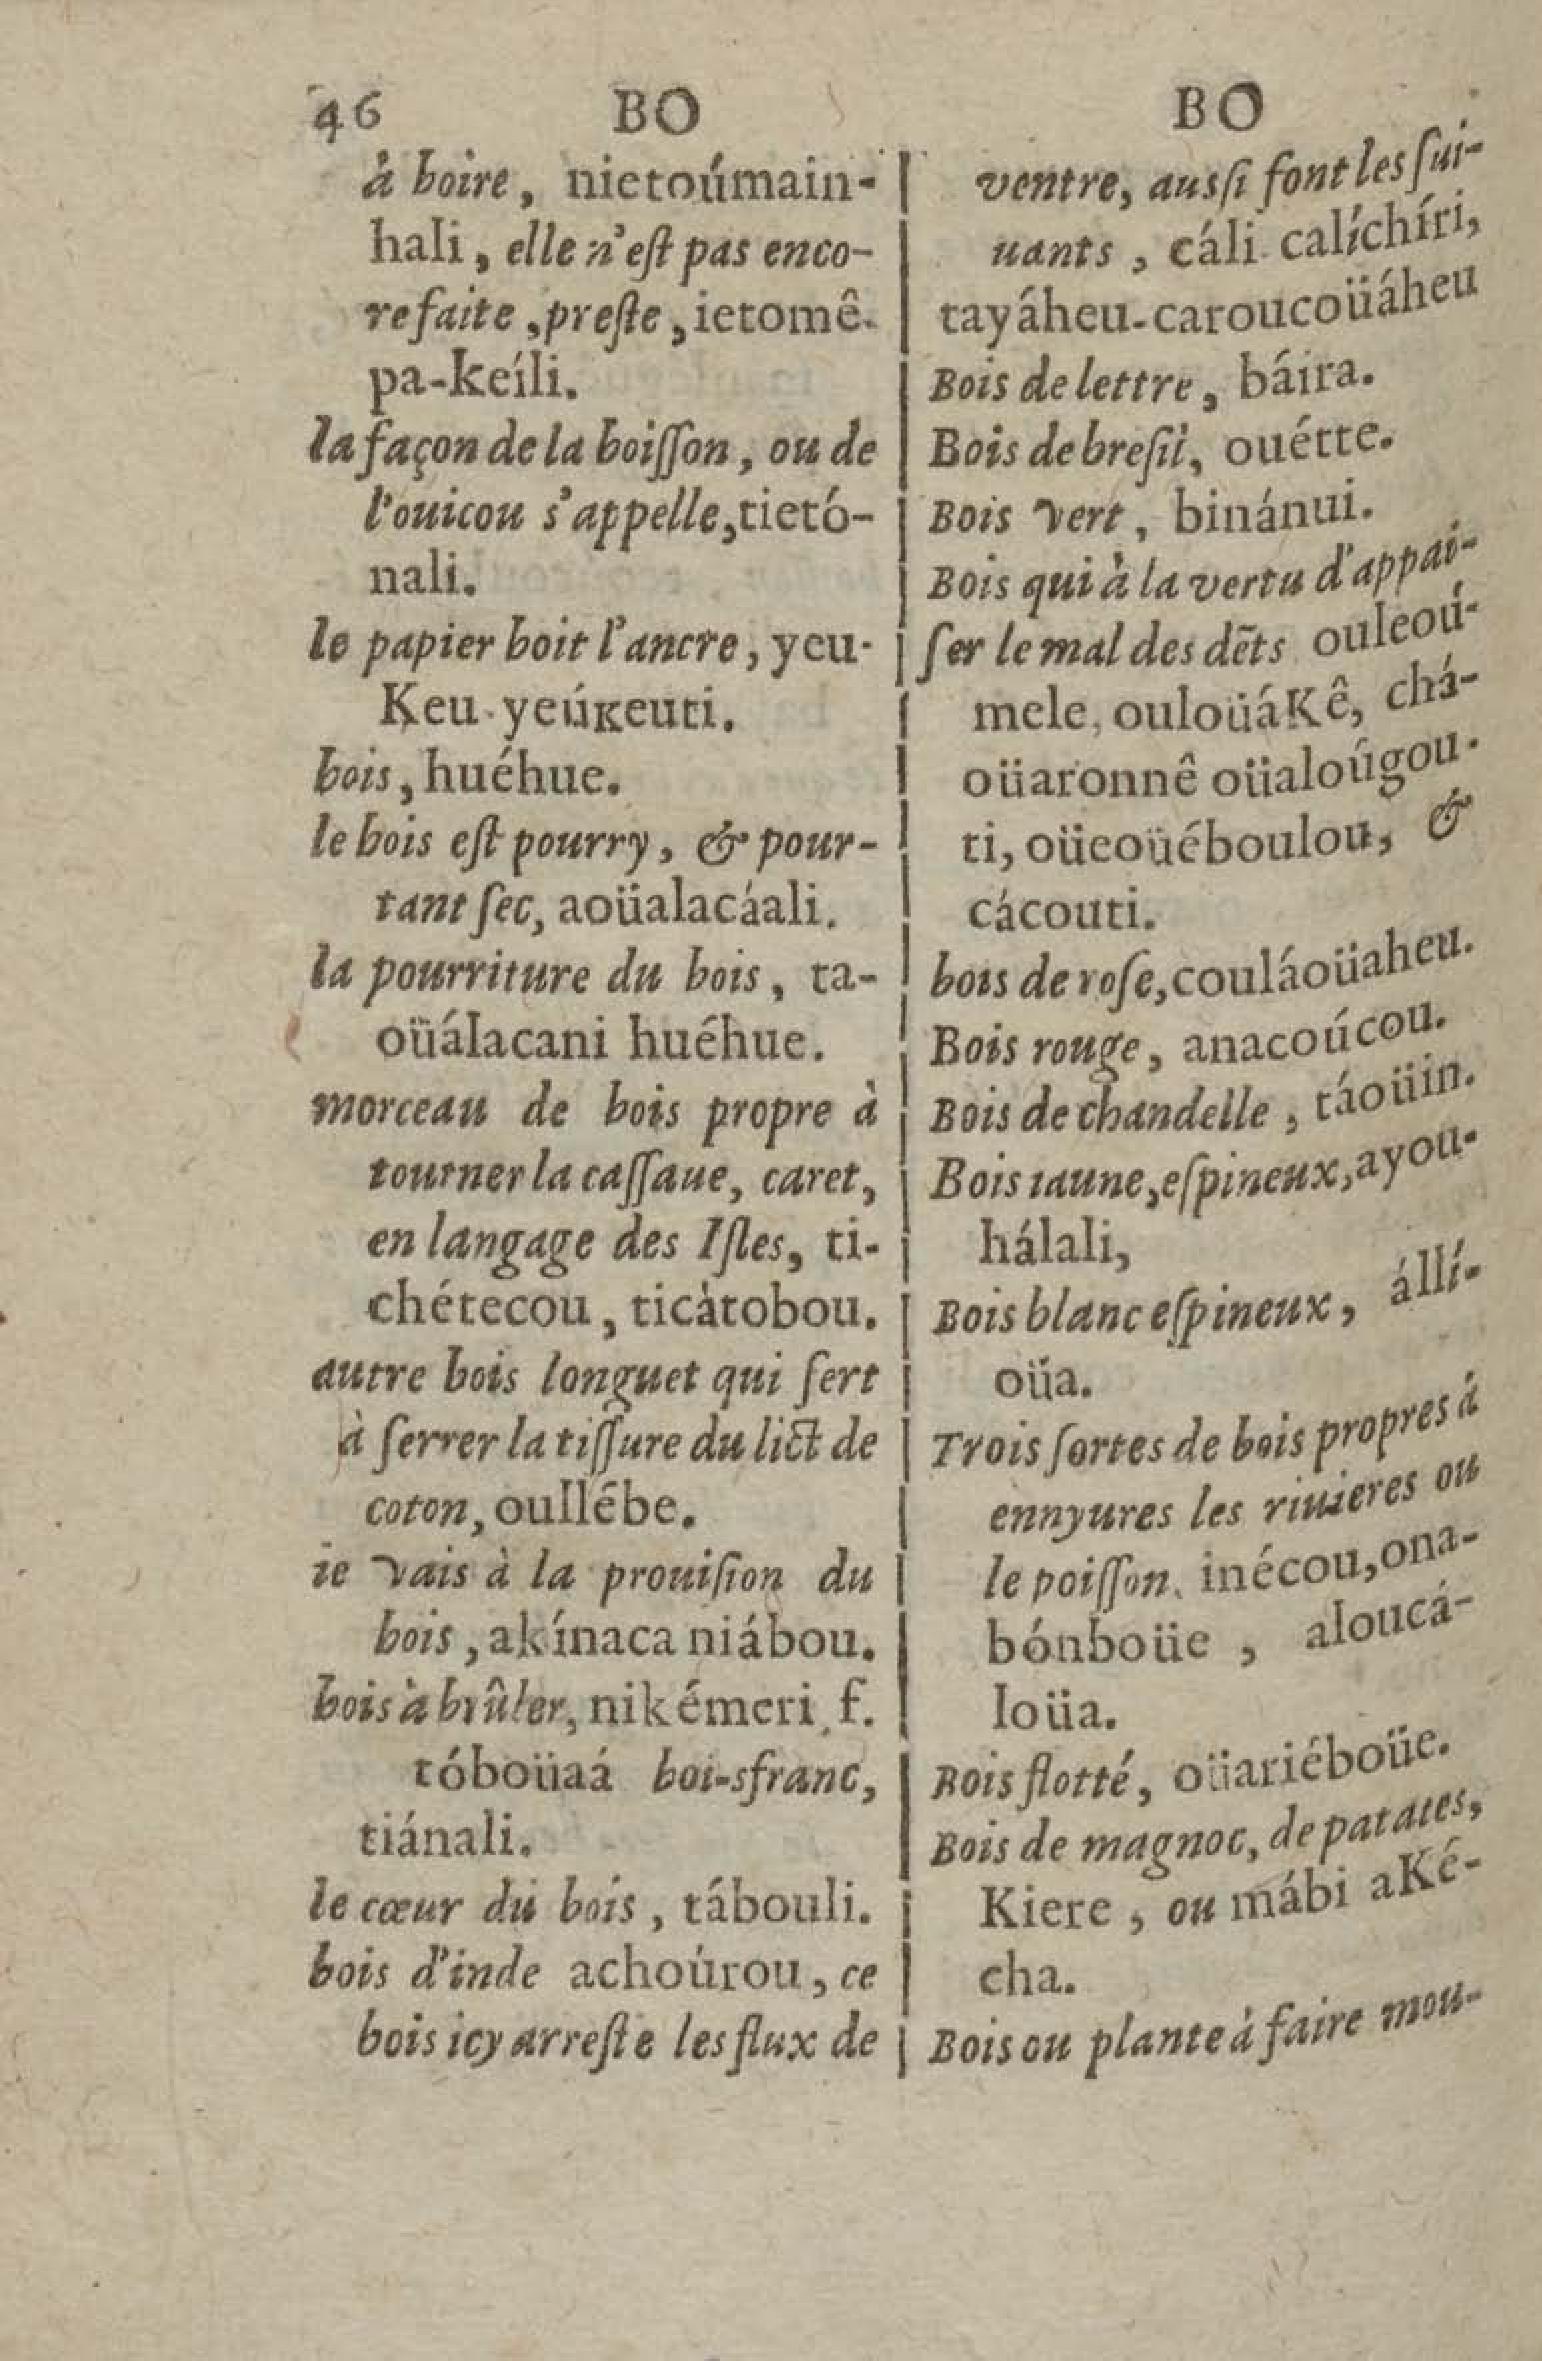 46 BO BO
à boire, nietoúmain-
hali, elle n'eſt pas enco-
re faite, preſte, ietomê-
pa-keíli.
la façon de la boiſſon, ou de
l'ouicou s'appelle, tietó-
nali.
le papier boit l'ancre, yeu-
Keu yeúkeuti.
bois, huéhue.
le bois eſt pourry, & pour-
tant ſec, aoüalacáali.
la pourriture du bois, ta-
oüálacani huéhue.
morceau de bois propre à
tourner la caſſaue, caret,
en langage des Iſles, ti-
chétecou, ticàtobou.
autre bois longuet qui ſert
à ſerrer la tiſſure du lict de
coton, oullébe.
ie vais à la prouiſion du
bois, akínaca niábou.
bois à brûler, nikémeri, f.
tóboüaá boi-sfranc,
tiánali.
le cœur du bois, tábouli.
bois d'inde achoúrou, ce
bois icy arreſte les flux de
ventre, ausſi font les ſui-
uants, cáli calíchíri,
tayáheu-caroucoüáheu
Bois de lettre, báira.
Bois de breſil, ouétte.
Bois vert, binánui.
Bois qui à la vertu d'appai-
ſer le mal des dēts ouleoú-
mele, ouloüáKê, chá-
oüaronnê oüaloúgou-
ti, oüeoüéboulou, &
cácouti.
bois de roſe, couláoüaheu.
Bois rouge, anacoúcou.
Bois de chandelle, táoüin.
Bois iaune, eſpineux, ayou-
hálali,
Bois blanc eſpineux, állí-
oüa.
Trois ſortes de bois propres á
ennyures les riuieres ou
le poiſſon, inécou, ona-
bónboüe, aloucá-
loüa.
Bois flotté, oüariéboüe.
Bois de magnoc, de patates,
Kiere, ou mábi aKé-
cha.
Bois ou plante à faire mou-